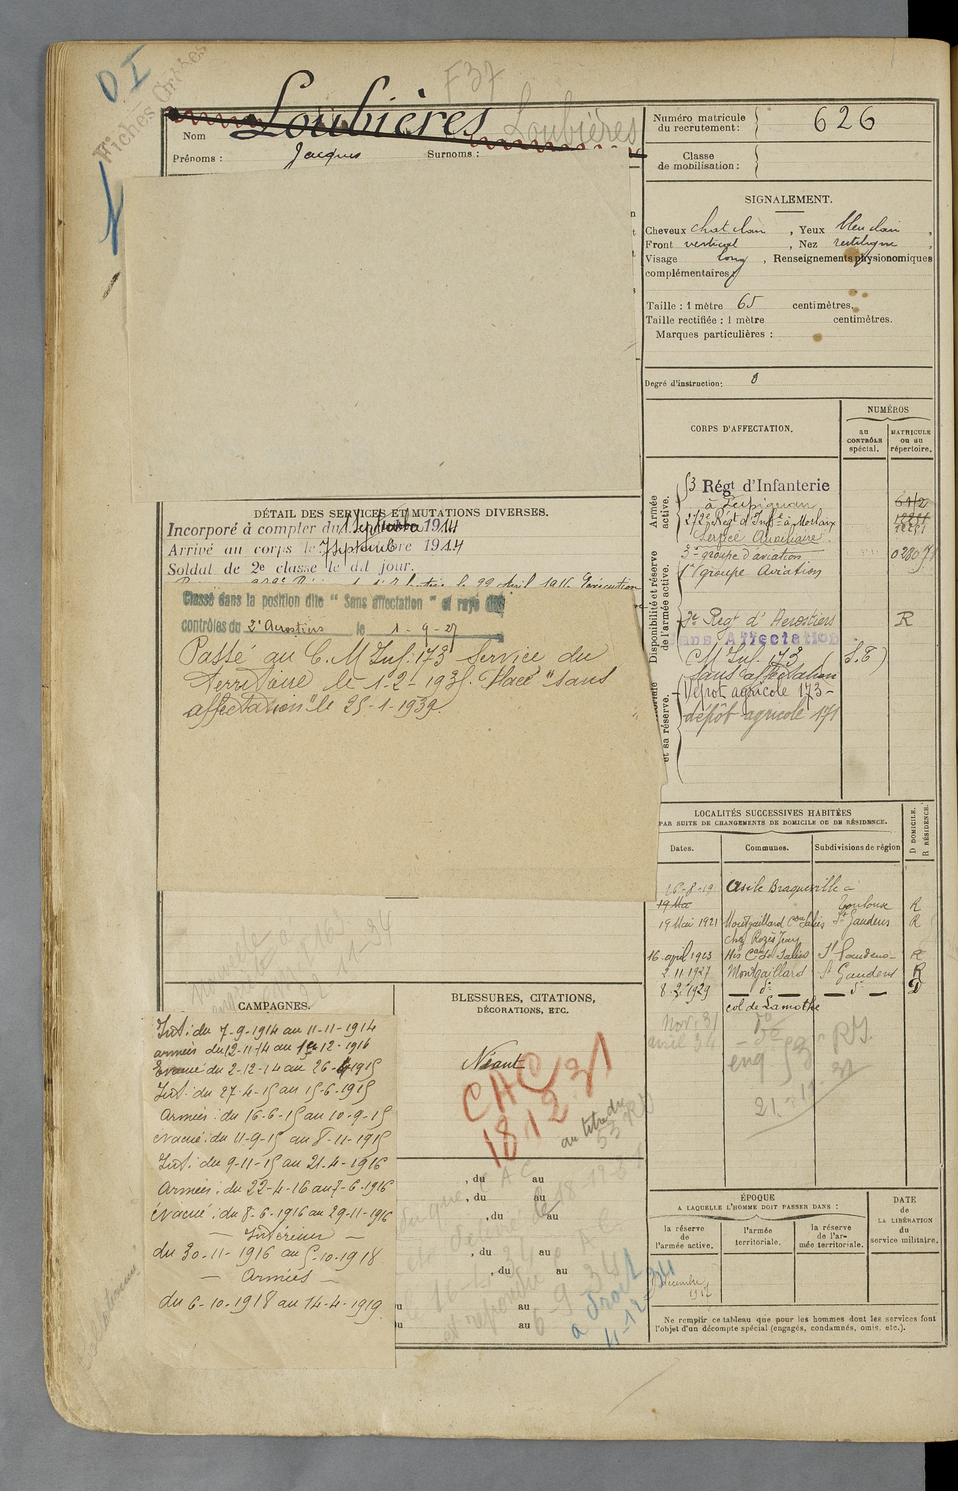 D I
Fiches Croisées
F 37
Nom Loubières Loubières
Prénoms : Jacques Surnoms :
Numéro matricule
du recrutement : 626
Classe
de mobilisation :
SIGNALEMENT.
Cheveux chat clair, Yeux bleu clair,
Front vertical, Nez rectiligne,
Visage long, Renseignements physionomiques
complémentaires :
Taille : 1 mètre 65 centimètres.
Taille rectifiée : 1 mètre centimètres.
Marques particulières :
Degré d'instruction :
CORPS D'AFFECTATION.
NUMÉROS
au
CONTRÔLE
spécial.
MATRICULE
ou au
répertoire.
Armée
active.
Disponibilité et réserve
de l'armée active.
et sa réserve.
53 Régt d'Infanterie
à Perpignan
272e Régt d'Infie à Morlaix
Service Auxiliaire.
3e groupe d'aviation
1er groupe Aviation
2e Regt d'Aerostiers R
Sans Affectation
CM Inf. 173 (S.T)
sans affectation
Dépot agricole 173-
dépôt agricole 171
DÉTAIL DES SERVICES ET MUTATIONS DIVERSES.
Incorporé à compter du 1 Septembre 1914
Arrivé au corps le 7 Septembre 1914
Soldat de 2e classe le dit jour.
Classé dans la position dite " Sans affectation " et rayé des
contrôles du 2e Aerostiers le 1-9-27
Passé au C.M Inf. 173 Service du
Territoire le 1-2-1935. Placé "sans
affectation" le 25-1-1939.
LOCALITÉS SUCCESSIVES HABITÉES
PAR SUITE DE CHANGEMENTS DE DOMICILE OU DE RÉSIDENCE.
D DOMICILE.
R RÉSIDENCE.
Dates.
Communes.
Subdivisions de région
16-8-19 Asile Braqueville à
19 Mai Toulouse R
19 Mai 1921 Montgaillard Con Salies St Gaudens R
chez Rozès Jean
16 april 1923 His Con de Salies St Gaudens R
2.11.1927 Montgaillard St Gaudens R
8-2-1929 — do — — do — D
col de Lamothe
Nov. 31
avril 34
CAMPAGNES.
Int : du 7-9-1914 au 11-11-1914
armées du 12-11-14 au 1er-12-1914
Evacué du 2-12-14 au 26-4-1915
Int : du 27-4-15 au 15-6-1915
Armées : du 16-6-15 au 10-9-15
évacué : du 11-9-15 au 8-11-1915
Int : du 9-11-15 au 21-4-1916
Armées : du 22-4-16 au 7-6-1916
évacué : du 8-6-1916 au 29-11-1916
— Intérieur —
du 30-11-1916 au 5-10-1918
— Armées —
du 6-10-1918 au 14-4-1919
BLESSURES, CITATIONS,
DÉCORATIONS, ETC.
Néant
CAC
18 12 31
au titre du
, du au
, du au
, du au
, du au
, du au
au
au
ÉPOQUE
A LAQUELLE L'HOMME DOIT PASSER DANS :
la réserve
de
l'armée active.
l'armée
territoriale.
la réserve
de l'ar-
mée territoriale.
DATE
de
LA LIBÉRATION
du
service militaire.
Ne remplir ce tableau que pour les hommes dont les services font
l'objet d'un décompte spécial (engagés, condamnés, omis, etc.).